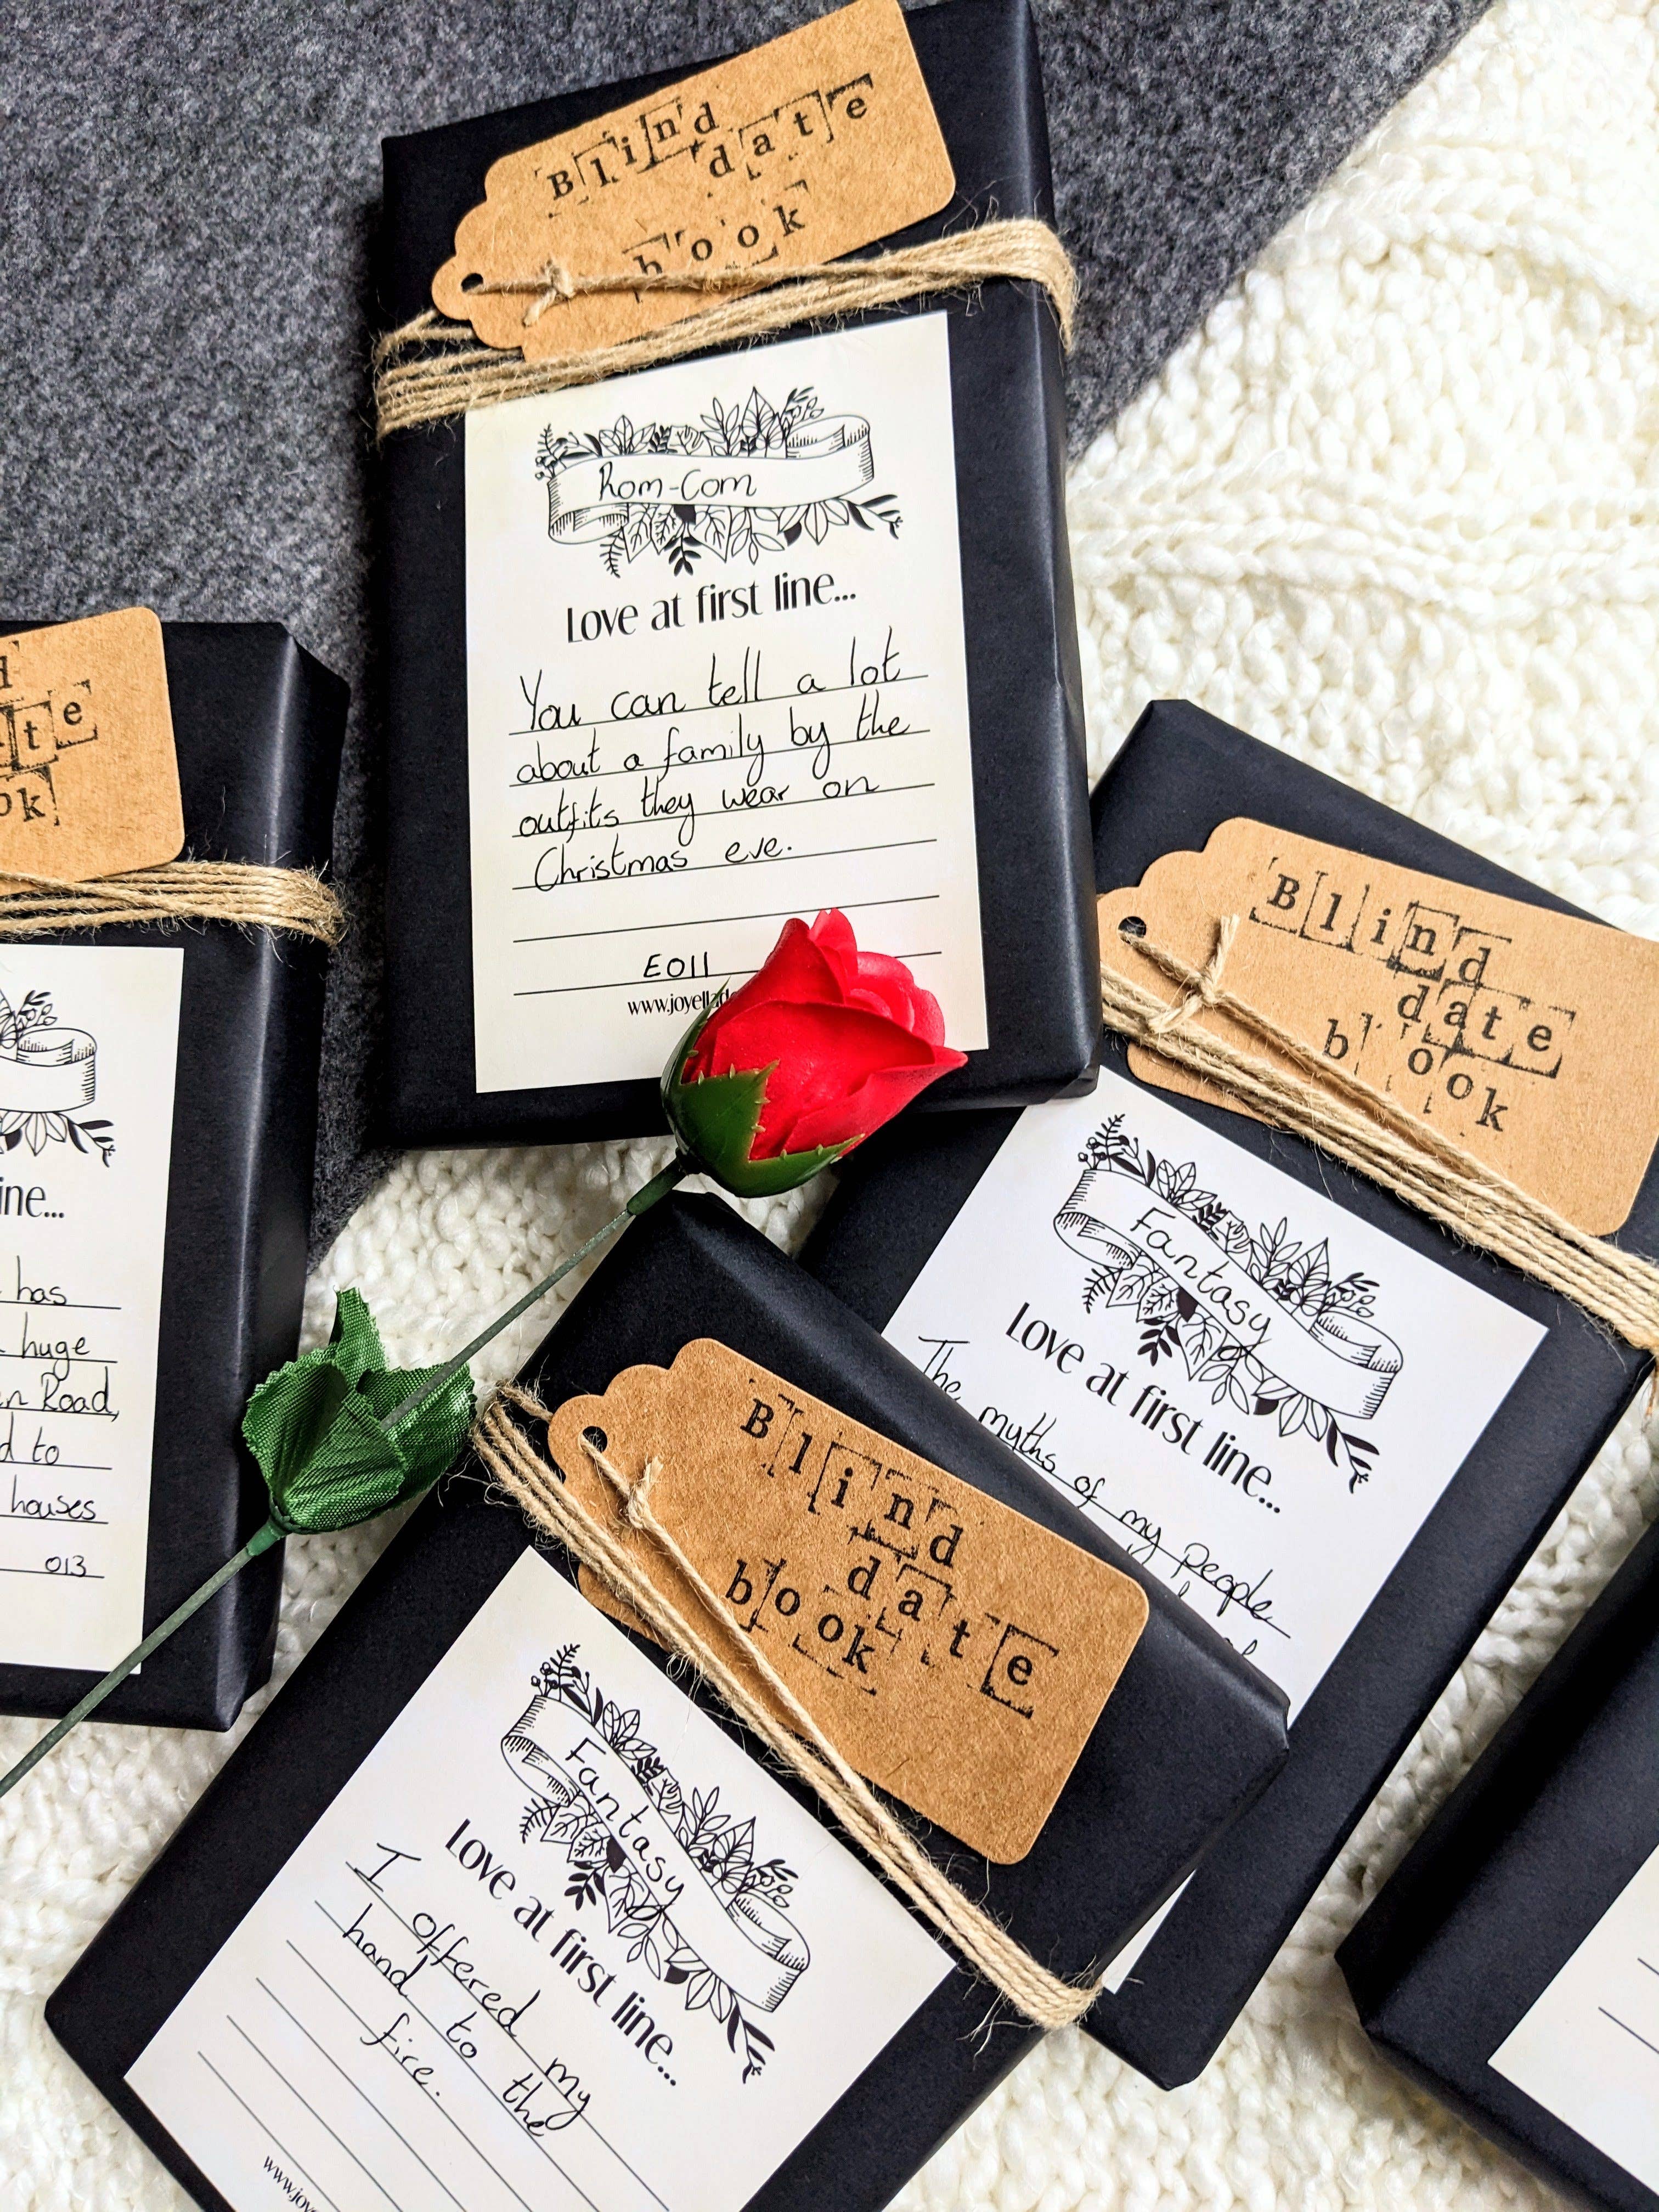 Blind
date
book
Rom-Com
Love at first line...
You can tell a lot
about a family by the
outfits they wear on
Christmas eve.
E011
e
ine...
has
huge
Road,
to
houses
013
Blind
date
book
Fantasy
Love at first line...
The myths of my people
Blind
date
book
Fantasy
Love at first line...
I offered my
hand to the
fire.